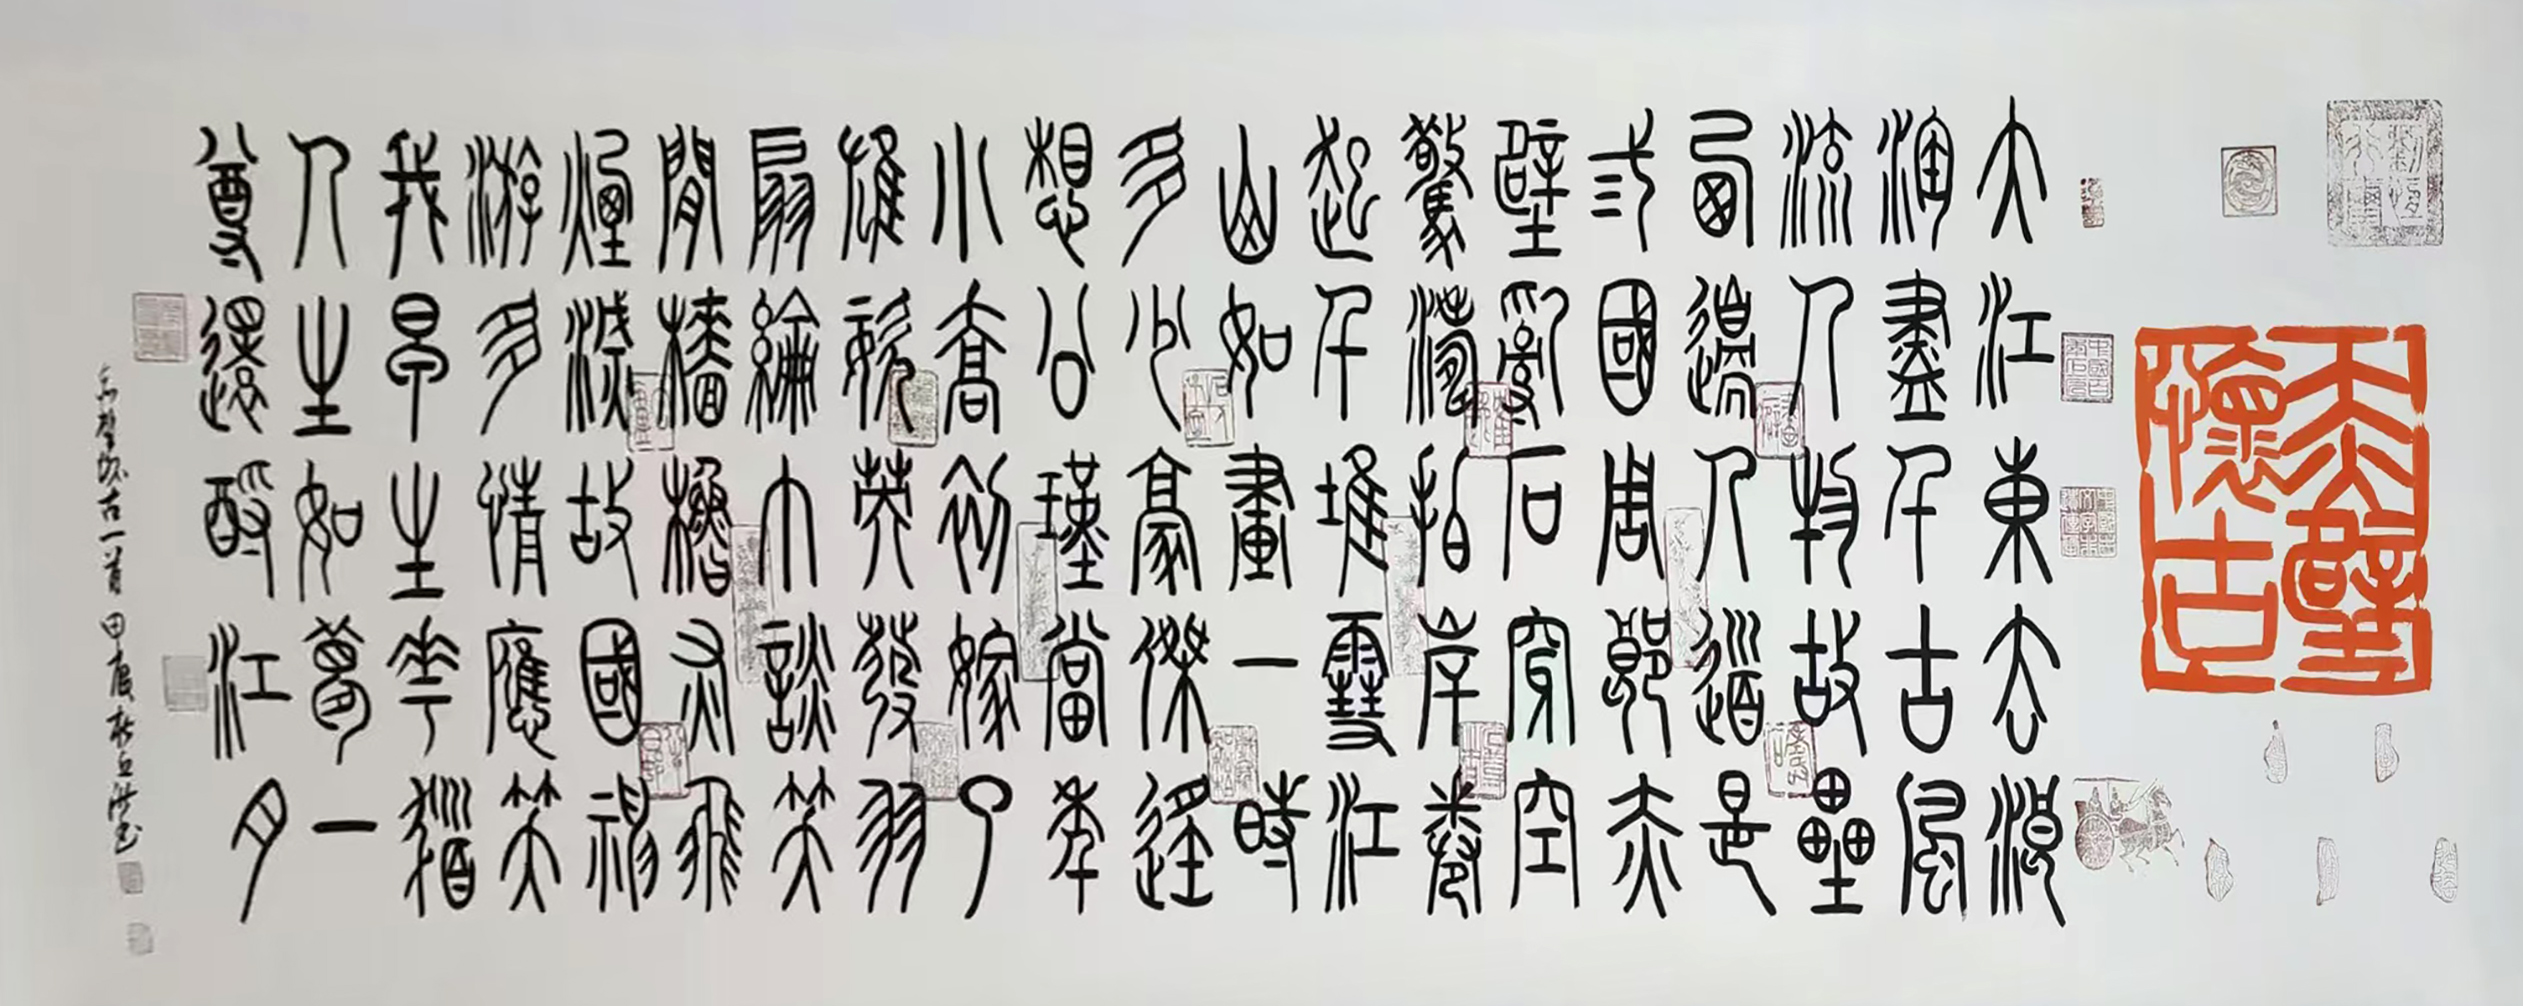 赤壁
懷古
大江東去浪
淘盡千古風
流人物故壘
西邊人道是
三國周郎赤
壁亂石穿空
驚濤拍岸卷
起千堆雪江
山如畫一時
多少豪傑遙
想公瑾當年
小喬初嫁了
雄姿英發羽
扇綸巾談笑
間檣櫓灰飛
煙滅故國神
游多情應笑
我早生華髮
人生如夢一
尊還酹江月
赤壁怀古一首